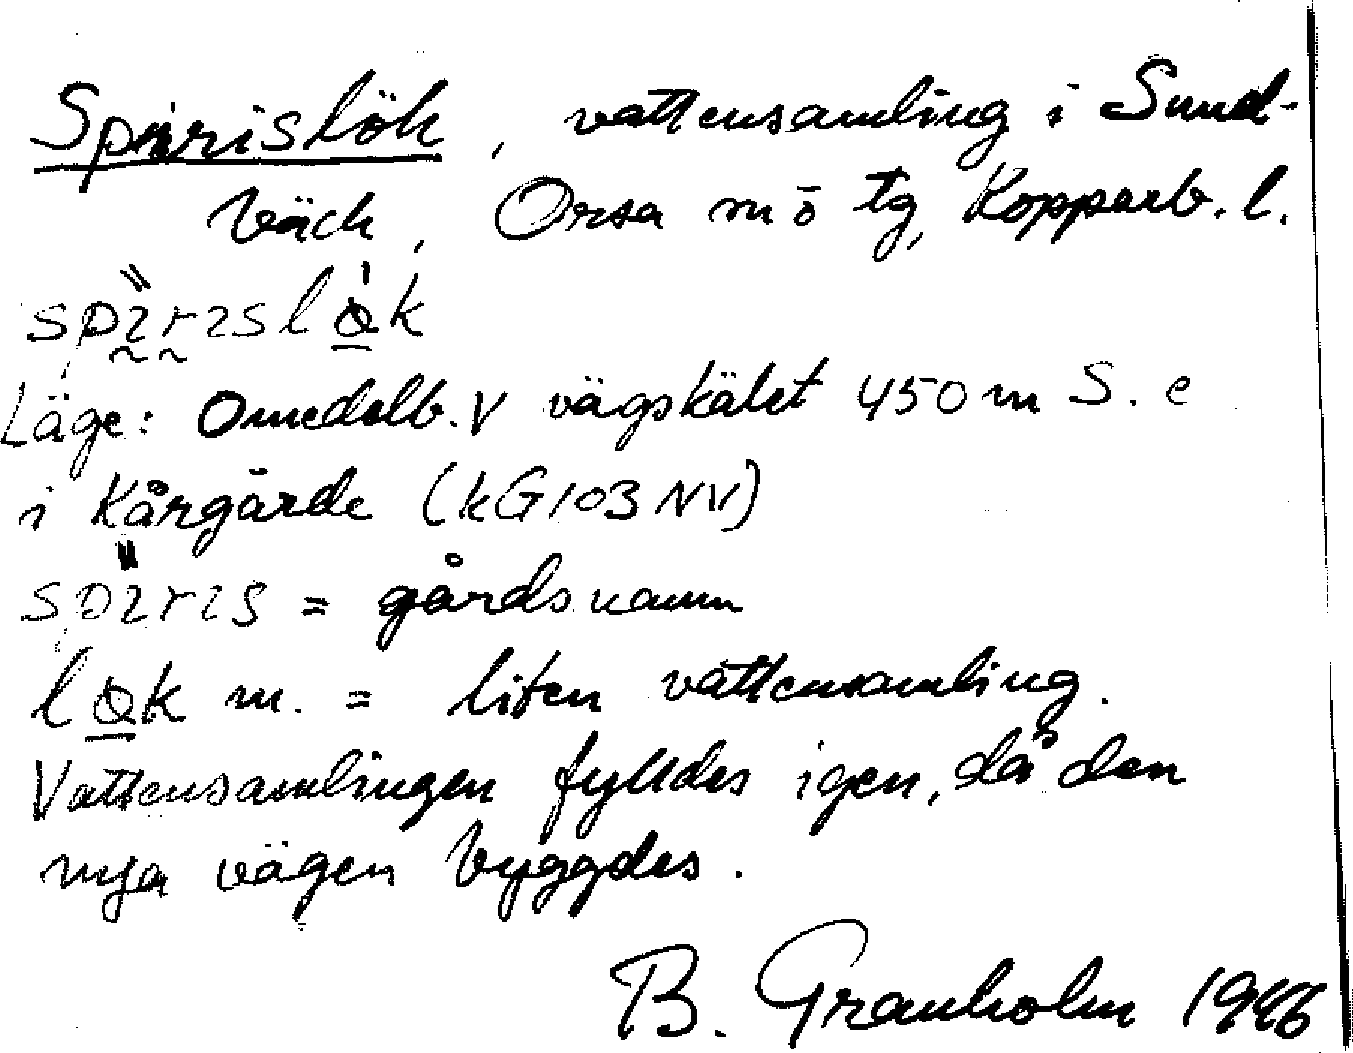 Spirrislök, vattensamling i Sund-
bäck, Orsa m ö tg, Kopparb. l.
spɩrɩslø̱k
Läge: Omedelb. V vägskälet 450 m S. e
i Kårgärde (kG103NV)
spɩrɩs = gårdsnamn
lø̱k m. = liten vattensamling.
Vattensamlingen fylldes igen, då den
nya vägen byggdes.
B. Granholm